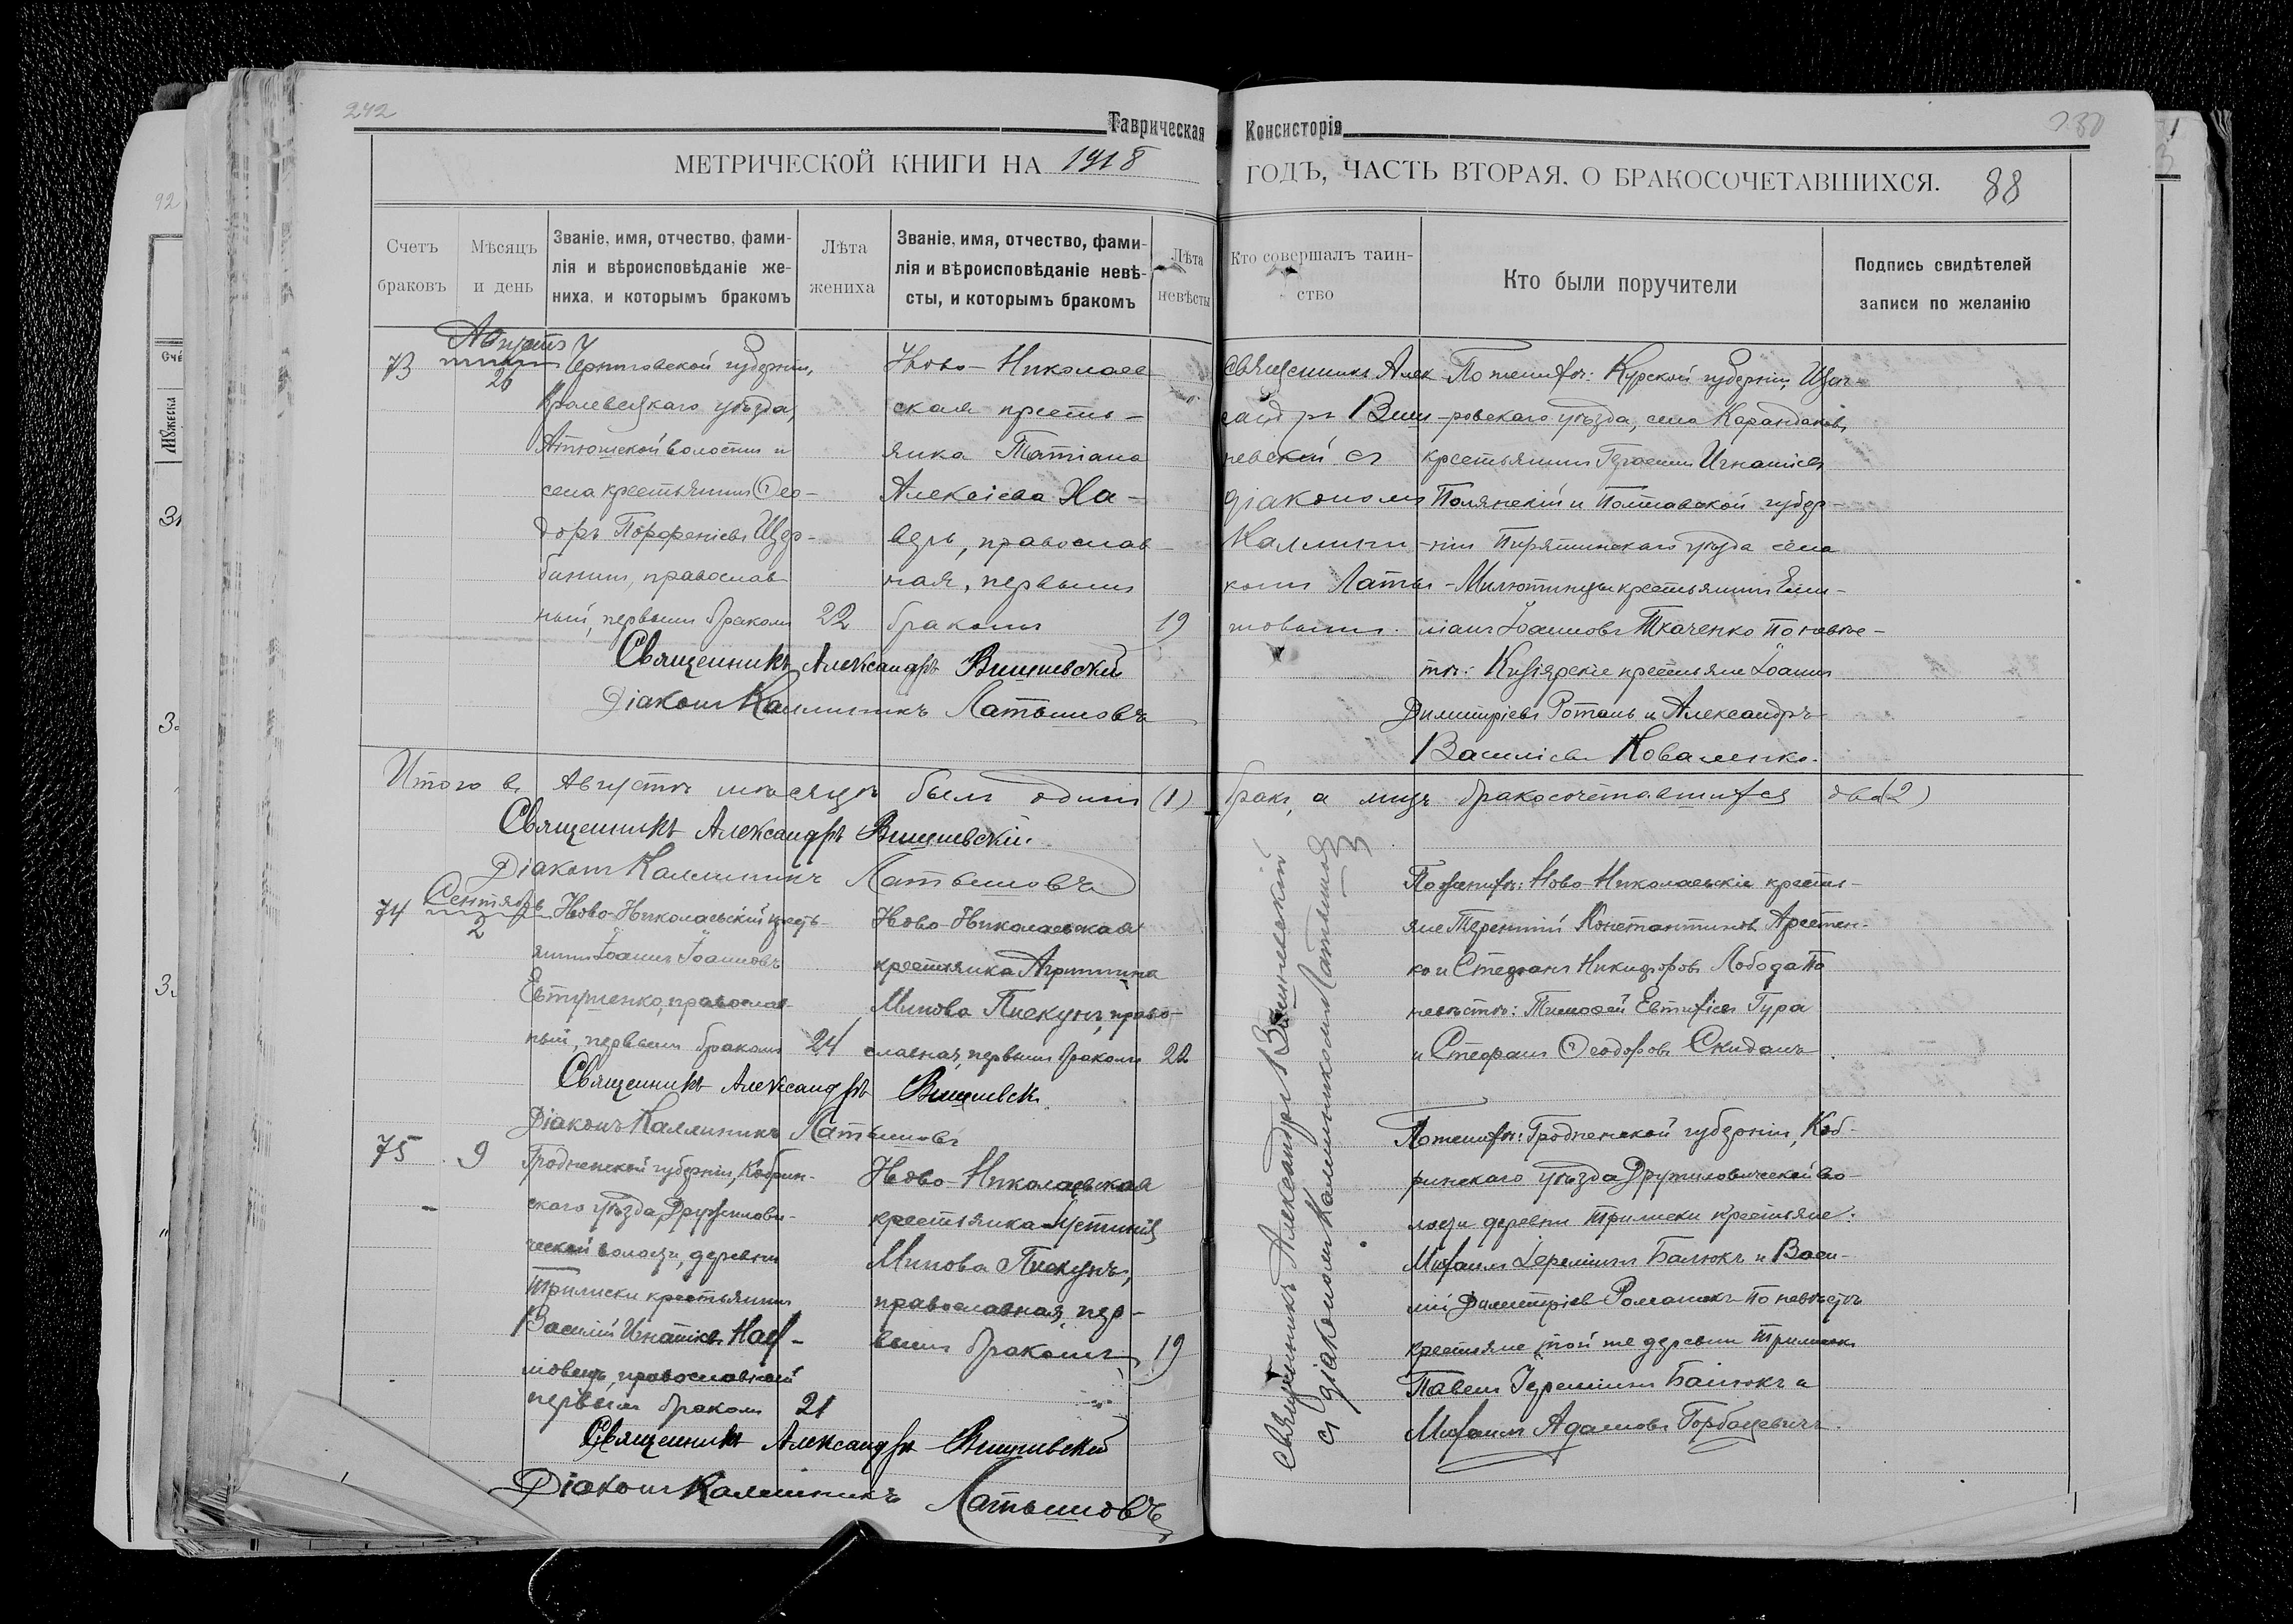 242
Таврическая Консисторія
230
МЕТРИЧЕСКОЙ КНИГИ НА 1918 ГОДЪ, ЧАСТЬ ВТОРАЯ, О БРАКОСОЧЕТАВШИХСЯ.
88
Счетъ браковъ
Мѣсяцъ и день
Званіе, имя, отчество, фами-
лія и вѣроисповѣданіе же-
ниха, и которымъ бракомъ
Лѣта жениха
Званіе, имя, отчество, фами-
лія и вѣроисповѣданіе невѣ-
сты, и которымъ бракомъ
Лѣта невѣсты
Кто совершалъ таин-
ство
Кто были поручители
Подпись свидѣтелей
записи по желанію
73
Августъ
26
Черниговской губерніи,
Кролевецкаго уѣзда,
Атюшской волости и
села крестьянинъ Ѳео-
доръ Порфеніевъ Щер-
бининъ, православ-
ный, первымъ бракомъ
22
Ново-Николаев
ская кресть-
янка Татіана
Алексіева Ха-
верь, православ-
ная, первымъ
бракомъ
19
Священникъ Алек
сандръ Виш-
невскій съ
діакономъ
Каллини-
комъ Латы-
шовымъ.
По женихѣ: Курской губерніи, Щиг-
ровскаго уѣзда, села Карандаковъ
крестьянинъ Герасимъ Игнатіевъ
Полянскій и Полтавской губер-
ніи Пирятинскаго уѣзда села
Милютинцы крестьянинъ Еми-
ліанъ Іоанновъ Ткаченко По невѣс-
тѣ: Кизіярскіе крестьяне Іоаннъ
Димитріевъ Ротань и Александръ
Василіевъ Коваленко.
Священникъ Александръ Вишневскій
Діаконъ Каллиникъ Латышовъ
Итого въ Августѣ мѣсяцѣ былъ одинъ (1) бракъ, а лицъ бракосочетавшихся два (2)
Священникъ Александръ Вишневскій.
Діаконъ Каллиникъ Латышовъ
74
Сентябрь
2
Ново-Николаевскій кресть-
янинъ Іоаннъ Іоанновъ
Евтушенко, православ-
ный, первымъ бракомъ
24
Ново-Николаевская
крестьянка Агриппина
Минова Пискунъ, право-
славная, первымъ бракомъ
22
По женихѣ: Ново-Николаевскіе кресть-
яне Терентій Константиновъ Арестен-
ко и Стефанъ Никифоровъ Лобода По
невѣстѣ: Тимофей Евтихіевъ Гура
и Стефанъ Ѳеодоровъ Скиданъ.
Священникъ Александръ Вишневск
Діаконъ Каллиникъ Латышовъ
Священникъ Александръ Вишневскій
съ діакономъ Каллиникомъ Латышов
75
9
Гродненской губерніи, Кобрин-
скаго уѣзда, Дружилови-
ческой волости, деревни
Трилиски крестьянинъ
Василій Игнатіевъ
православный
первымъ бракомъ
21
Ново-Николаевская
крестьянка Іустинія
Минова Пискунъ,
православная, пер-
вымъ бракомъ
19
По женихѣ: Гродненской губерніи, Коб-
ринскаго уѣзда Дружиловической во-
лости деревни Трилиски крестьяне:
Михаилъ Іереміинъ Балюкъ и Васи-
лій Димитріевъ Романюкъ По невѣстѣ
крестьяне той же деревни Трилиски
Павелъ Іереміинъ Балюкъ и
Михаилъ Адамовъ Горбацевичъ.
Священникъ Александръ Вишневскій
Діаконъ Каллиникъ Латышовъ